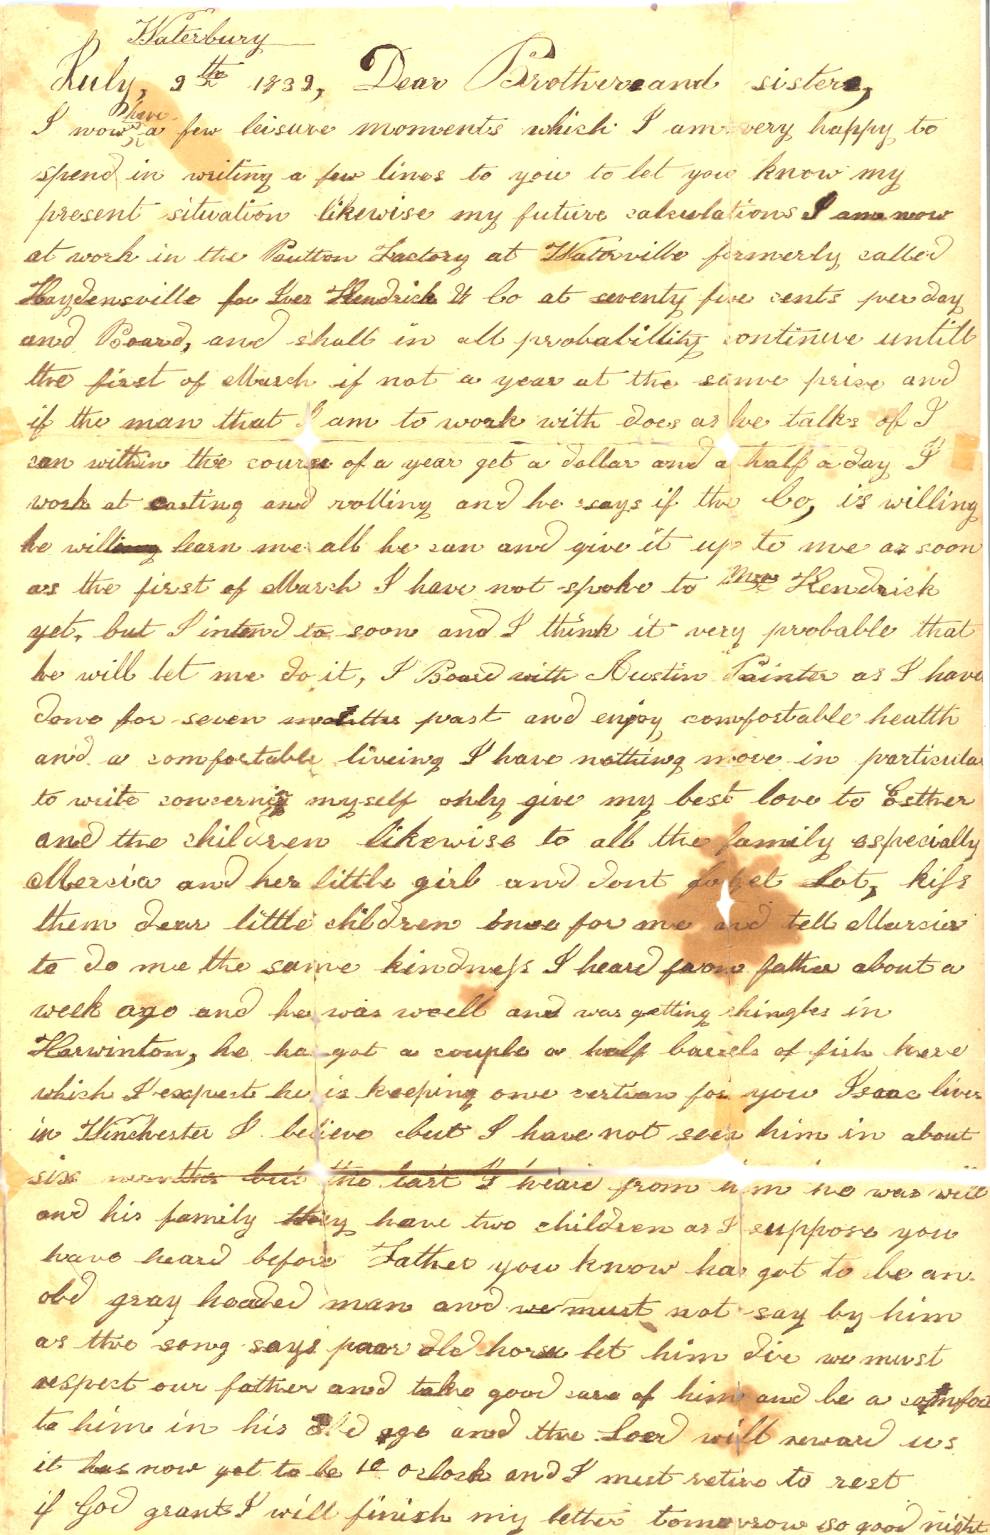 Waterbury
July, 9th 1839, Dear Brother and sister,
I now have a few leisure moments which I am very happy to
spend in writing a few lines to you to let you know my
present situation likewise my future calculations I am now
at work in the Button Factory at Waterville formerly called
Haydensville for Ives Kendrick & Co at seventy five cents per day
and Board, and shall in all probabillity continue untill
the first of March if not a year at the same prise and
if the man that I am to work with does as he talks of I
can within the course of a year get a dollar and a half a day I
work at casting and rolling and he says if the Co, is willing
he will learn me all he can and give it up to me as soon
as the first of March I have not spoke to Mr Kendrick
yet, but I intend to soon and I think it very probable that
he will let me do it, I Board with Austin Painter as I have
done for seven months past and enjoy comfortable health
and a comfortable liveing I have nothing more in particular
to write concerning myself only give my best love to Esther
and the children likewise to all the family especially
Mercia and her little girl and dont forget Lot, kiss
them dear little children once for me and tell Marcia
to do me the same kindness I heard from father about a
week ago and he was well and was getting shingles in
Harwinton, he has got a couple a half barrels of fish here
which I expect he is keeping one certian for you Isaac lives
in Winchester I believe but I have not seen him in about
six months but the last I heard from him he was well
and his family they have two children as I suppose you
have heard before Father you know has got to be an
old gray headed man and we must not say by him
as the song says poor old horse let him die we must
respect our father and take good care of him and be a comfort
to him in his old age and the Lord will reward us
it has now got to be 10 oclock and I must retire to rest
if God grants I will finish my letter tomorrow so good night